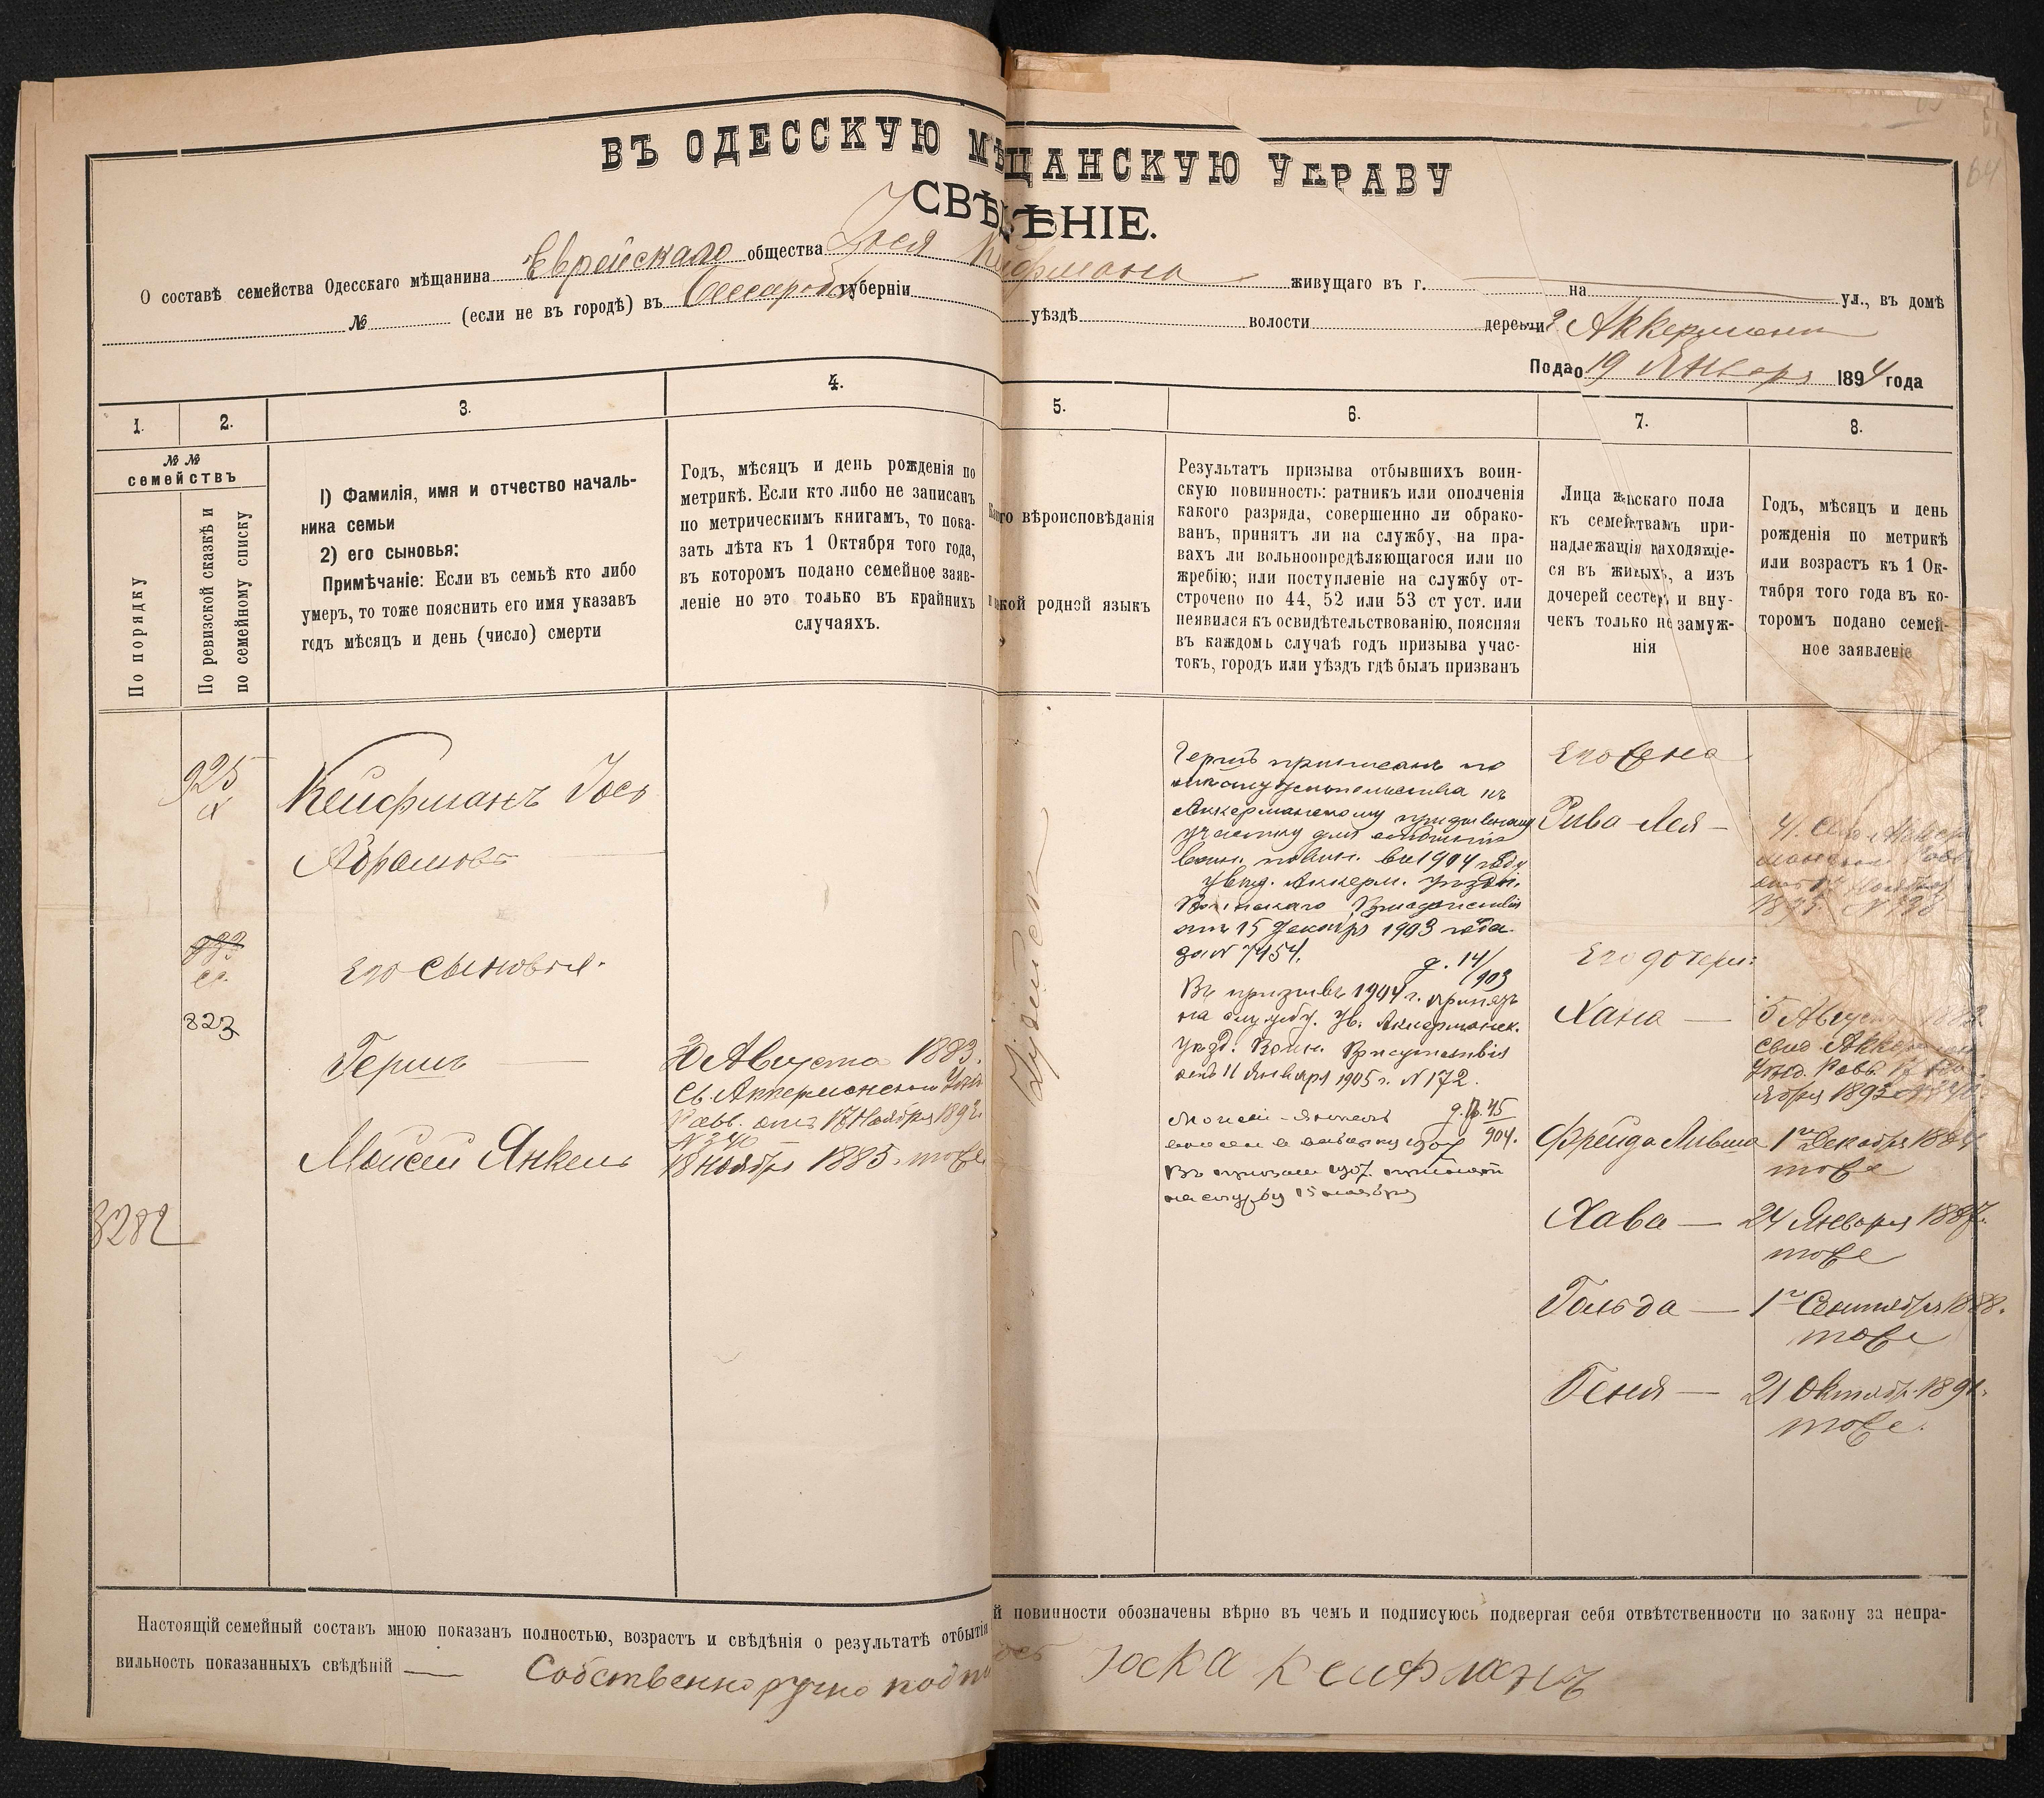 64
ВЪ ОДЕССКУЮ МѢЩАНСКУЮ УПРАВУ
СВѢДѢНІЕ.
О составѣ семейства Одесскаго мѣщанина Еврейскаго общества Іося Кейфмана живущаго въ г. на ул., въ домѣ
№ (если не въ городѣ) въ Бессараб губерніи уѣздѣ волости деревни Аккерманъ
Подано 19 Января 1894 года
1.
2.
3.
4.
5.
6.
7.
8.
№ №
семействъ
По порядку
По ревизской сказкѣ и
по семейному списку
1) Фамилія, имя и отчество началь-
ника семьи
2) его сыновья:
Примѣчаніе: Если въ семьѣ кто либо
умеръ, то тоже пояснить его имя указавъ
годъ мѣсяцъ и день (число) смерти
Годъ, мѣсяцъ и день рожденія по
метрикѣ. Если кто либо не записанъ
по метрическимъ книгамъ, то пока-
зать лѣта къ 1 Октября того года,
въ которомъ подано семейное заяв-
леніе но это только въ крайнихъ
случаяхъ.
вѣроисповѣданія
родной языкъ
Результатъ призыва отбывшихъ воин-
скую повинность: ратникъ или ополченія
какого разряда, совершенно ли обрако-
ванъ, принятъ ли на службу, на пра-
вахъ ли вольноопредѣляющагося или по
жребію; или поступленіе на службу от-
строчено по 44, 52 или 53 ст уст. или
неявился къ освидѣтельствованію, поясняя
въ каждомъ случаѣ годъ призыва учас-
токъ, городъ или уѣздъ гдѣ былъ призванъ
Лица женскаго пола
къ семействамъ при-
надлежащія находящіе-
ся въ живыхъ, а изъ
дочерей сестеръ и вну-
чекъ только не замуж-
нія
Годъ, мѣсяцъ и день
рожденія по метрикѣ
или возрастъ къ 1 Ок-
тября того года въ ко-
торомъ подано семей-
ное заявленіе
925
Кейфманъ Іось
Абрамовъ
Его сыновья.
823
Гершъ
Августа 1883.
Св. Аккерманскаго
Равв. отъ 17 Ноября 1893.
№ 340
Мойсей Янкель
18 Ноября 1885. тоже
3282
Іудейск
Гершъ приписанъ по
Аккерманскому призывному
участку для отбытія
воин. повин. въ 1904 году
увѣд. Аккерм. уѣздн.
Воинскаго Присутствія
отъ 15 Декабр 1903 года
за № 7454.
д. 14/903
Въ призывѣ 1904 г. принятъ
на службу. Ув. Аккерманск.
уѣзд. Воин. Присутствія
отъ 11 Января 1905 г. № 172.
Моисей-Янкель
904.
Въ призывѣ 1907. принятъ
на службу 15 ноября
Его жена
Рива-Лея —
Его дочери:
Хана —
5 Августа
Свид. Аккерман
Равв. 17 Но-
ября 1893
Фрейда Ливша 1го Декабря 1884
тоже
Хава — 24 Января 1887.
тоже
Гольда — 1го Сентября 1888.
тоже
Геня — 21 Октябр. 1891.
тоже.
Настоящій семейный составъ мною показанъ полностью, возрастъ и свѣдѣнія о результатѣ отбытія й повинности обозначены вѣрно въ чемъ и подписуюсь подвергая себя отвѣтственности по закону за непра-
вильность показанныхъ свѣдѣній — Собственноручно Іоска Кейфманъ